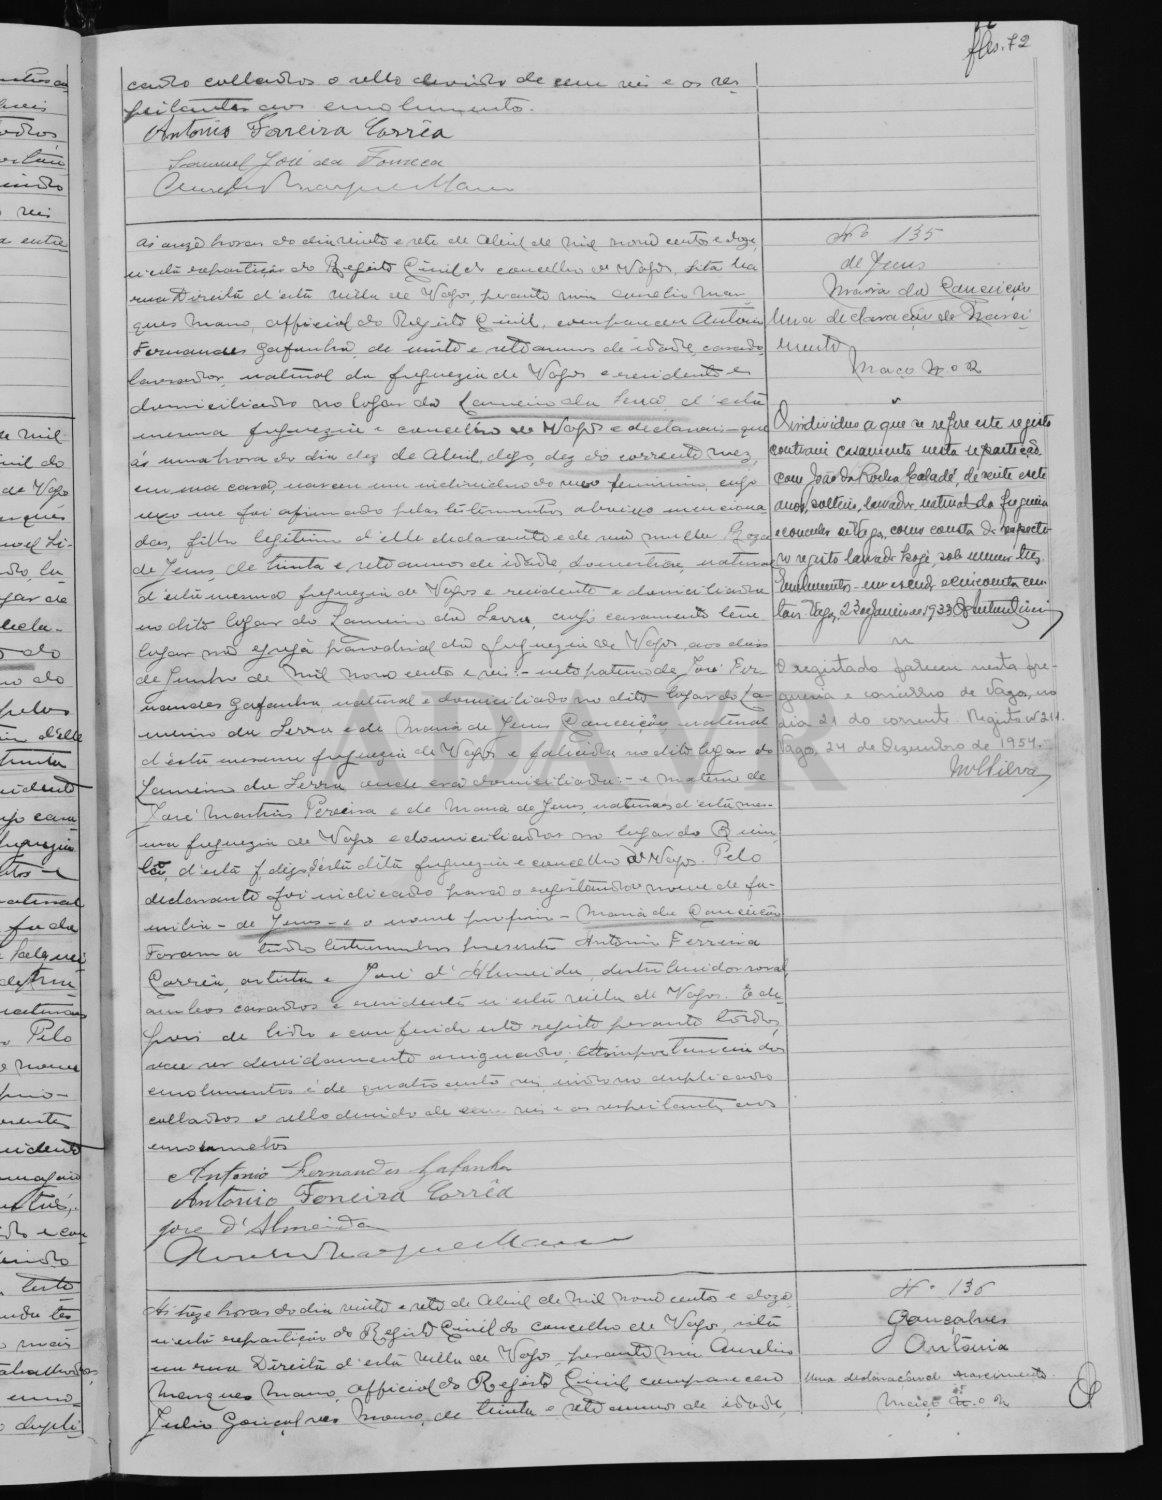 fls. 72
cado collados o sello devido de cem reis e os res
peitantes aos emolumentos.
Antonio Ferreira Corrêa
Samuel José da Fonseca
Aurelio Marques Mano
Nº 135
de Jesus
Maria da Conceição
Uma declaração de Nasci
mento
Maço Nº 2
Ás onze horas do dia vinte e sete de Abril de mil nove centos e doze,
n'esta repartição do Registo Civil do concelho de Vagos, sita na
rua Direita d'esta villa de Vagos, perante mim Aurelio Mar
ques Mano, official do Registo Civil, compareceu Antonio
Fernandes Gafanha, de vinte e sete annos de idade, casado,
lavrador, natural da freguezia de Vagos e residente e
domiciliado no logar do Lameiro da Serra, d'esta
mesma freguezia e concelho de Vagos e declarou - que
ás uma hora do dia dez de Abril, digo, dez do corrente mez,
em sua casa, nasceu um individuo do sexo feminino, cujo
sexo me foi afirmado pelas testemunhas abaixo menciona
das, filho legitimo d'elle declarante e de sua mulher Roza
de Jesus, de trinta e sete annos de idade, domestica, natural
d'esta mesma freguezia de Vagos e residente e domiciliada
no dito logar do Lameiro da Serra, cujo casamento teve
logar na egreja parochial da freguezia de Vagos, aos dois
de Junho de mil nove centos e seis: - neto paterno de José Fer
nandes Gafanha natural e domiciliado no dito logar do La
meiro da Serra e de Maria de Jesus Conceição, natural
d'esta mesma freguezia de Vagos e falecida no dito logar do
Lameiro da Serra onde era domiciliada: - e materno de
José Martins Pereira e de Maria de Jesus, naturaes d'esta mes-
ma freguezia de Vagos e domiciliados no logar do
d'esta f, digo, d'esta dita freguezia e concelho de Vagos. Pelo
declarante foi indicado para o registando o nome de fa-
milia - de Jesus - e o nome proprio - Maria da Conceição
Foram a tudo testemunhas presentes Antonio Ferreira
Corrêa, artista e José d'Almeida, distribuidor rural,
ambos casados e residentes n'esta villa de Vagos. E de
pois de lido e conferido este registo perante todos,
vae ser devidamente assignado. A importancia dos
emolumentos é de quatro centos reis, indo no duplicado
collados o sello devido de cem reis e os respeitantes aos
emolumentos
Antonio Fernandes Gafanha
Antonio Ferreira Corrêa
Jose d'Almeida
Aurelio Marques Mano
O individuo a que se refere este registo
contraiu casamento nesta repartição
com João da Rocha Caladé, de vinte e sete
anos, solteiro, lavrador, natural da freguesia
e concelho de Vagos, como consta do respecti-
vo registo lavrado hoje, sob numero três.
Emolumentos - um escudo e cincoenta cen
tavos. Vagos, 23 de Janeiro de 1933
O registado faleceu nesta fre-
guesia e concelho de Vagos, no
dia 21 do corrente. Registo nº 211.
Vagos, 24 de Dezembro de 1954.
MSilva
ADAVR
Nº 136
Gonçalves
Antónia
Uma declaração de nascimento.
Maço Nº 2
Ás treze horas do dia vinte e sete de Abril de mil nove centos e doze,
n'esta repartição do Registo Civil do concelho de Vagos, sita
na rua Direita d'esta villa de Vagos, perante mim Aurelio
Marques Mano, official do Registo Civil compareceu
Julio Gonçalves Mano, de trinta e sete annos de idade,